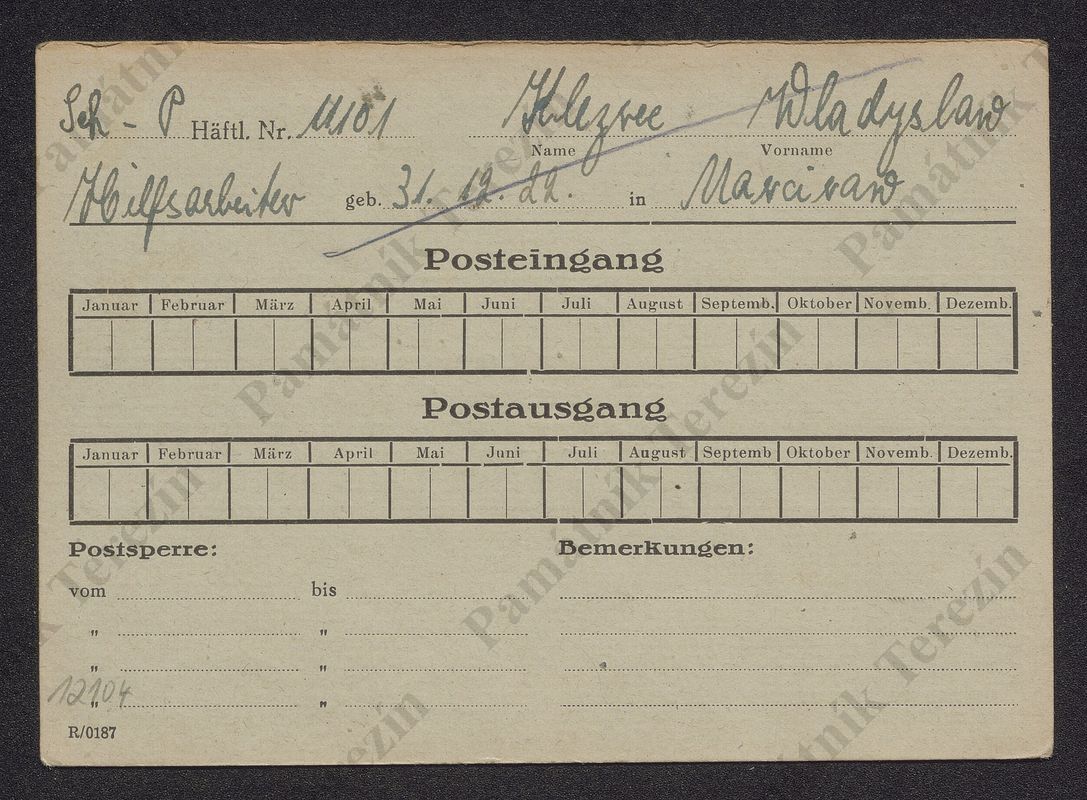 Sch - P Häftl. Nr. 11101 Wladyslaw
Name Vorname
Hilfsarbeiter geb. 31. 12. 22. in
Posteingang
Januar Februar März April Mai Juni Juli August Septemb. Oktober Novemb. Dezemb.
Postausgang
Januar Februar März April Mai Juni Juli August Septemb Oktober Novemb. Dezemb.
Postsperre: Bemerkungen:
vom bis
„ „
„ „
12104 „ „
R/0187
Památník Terezín